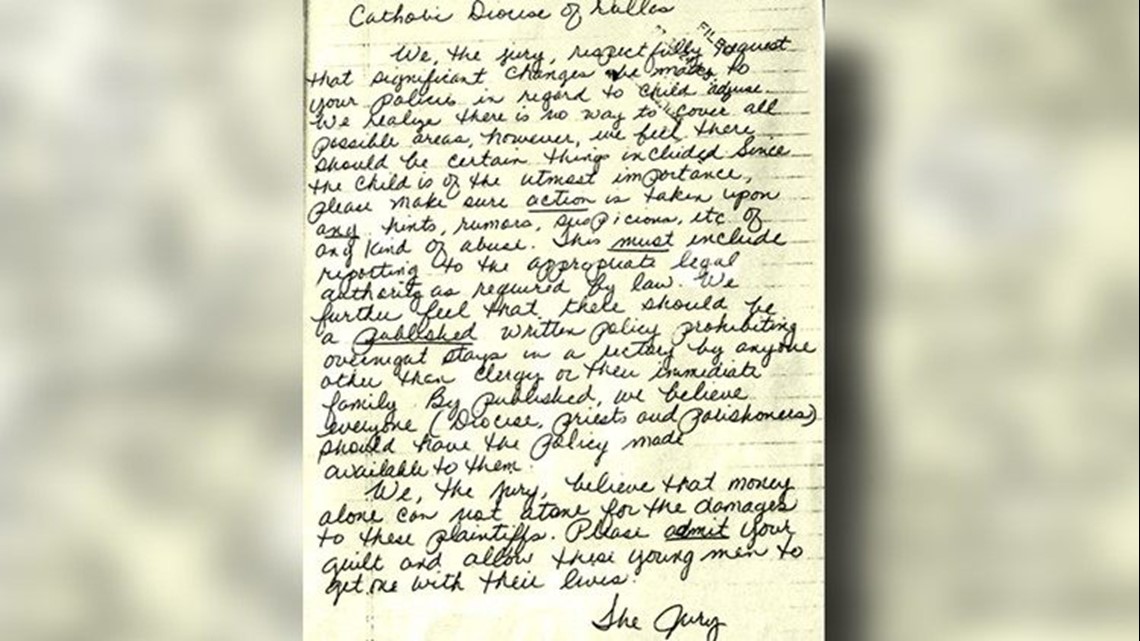 Catholic Diocese of Dallas
We, the jury, respectfully request
that significant changes be made to
your policies in regard to child abuse.
We realize there is no way to cover all
possible areas, however, we feel there
should be certain things included. Since
the child is of the utmost importance,
please make sure action is taken upon
any hints, rumors, suspicions, etc. of
any kind of abuse. This must include
reporting to the appropriate legal
authority as required by law. We
further feel that there should be
a published written policy prohibiting
overnight stays in a rectory by anyone
other than clergy or their immediate
family. By published, we believe
everyone (Diocese, priests and parishoners)
should have the policy made
available to them.
We, the jury, believe that money
alone can not atone for the damages
to these plaintiffs. Please admit your
guilt and allow these young men to
get one with their lives.
The Jury